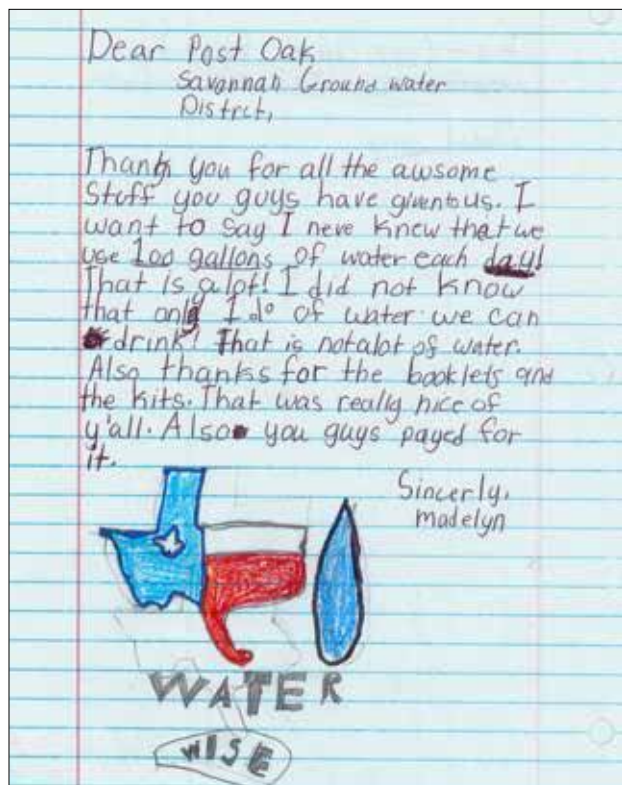 Dear Post Oak
Savannah Ground water
Distrct,
Thank you for all the awsome
Stuff you guys have givento us. I
want to say I neve knew that we
use 100 gallons of water each day!
That is a lot! I did not know
that only 1 % of water we can
drink! That is not alot of water.
Also thanks for the booklets and
the kits. That was really nice of
y'all. Also you guys payed for
it.
Sincerly,
madelyn
WATER
WISE